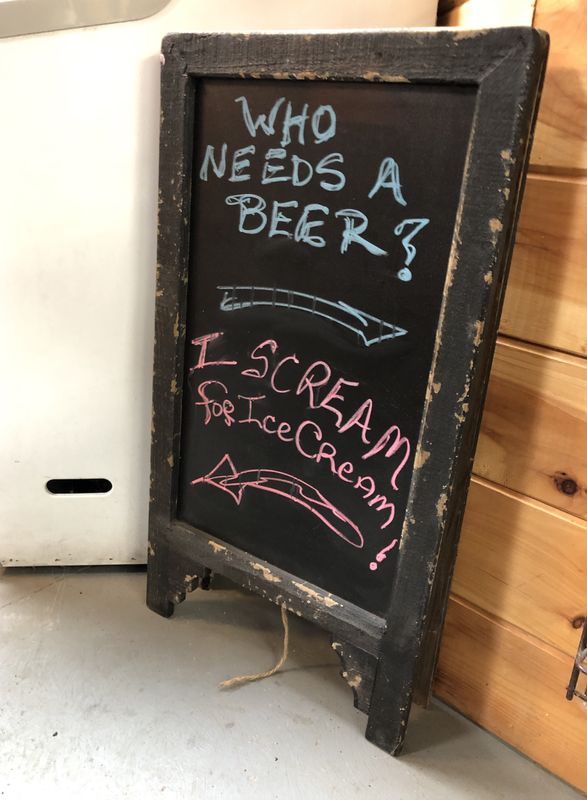 WHO
NEEDS A
BEER?
I SCREAM
for IceCReam!